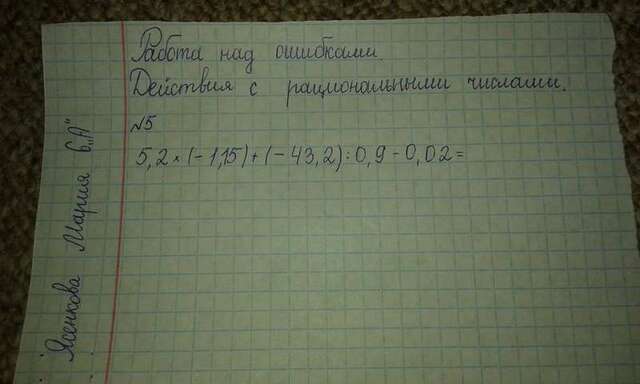 Работа над ошибками.
Действия с рациональными числами.
№5
5,2 × (-1,15) + (-43,2) : 0,9 - 0,02 =
Ясенкова Мария 6 „А"